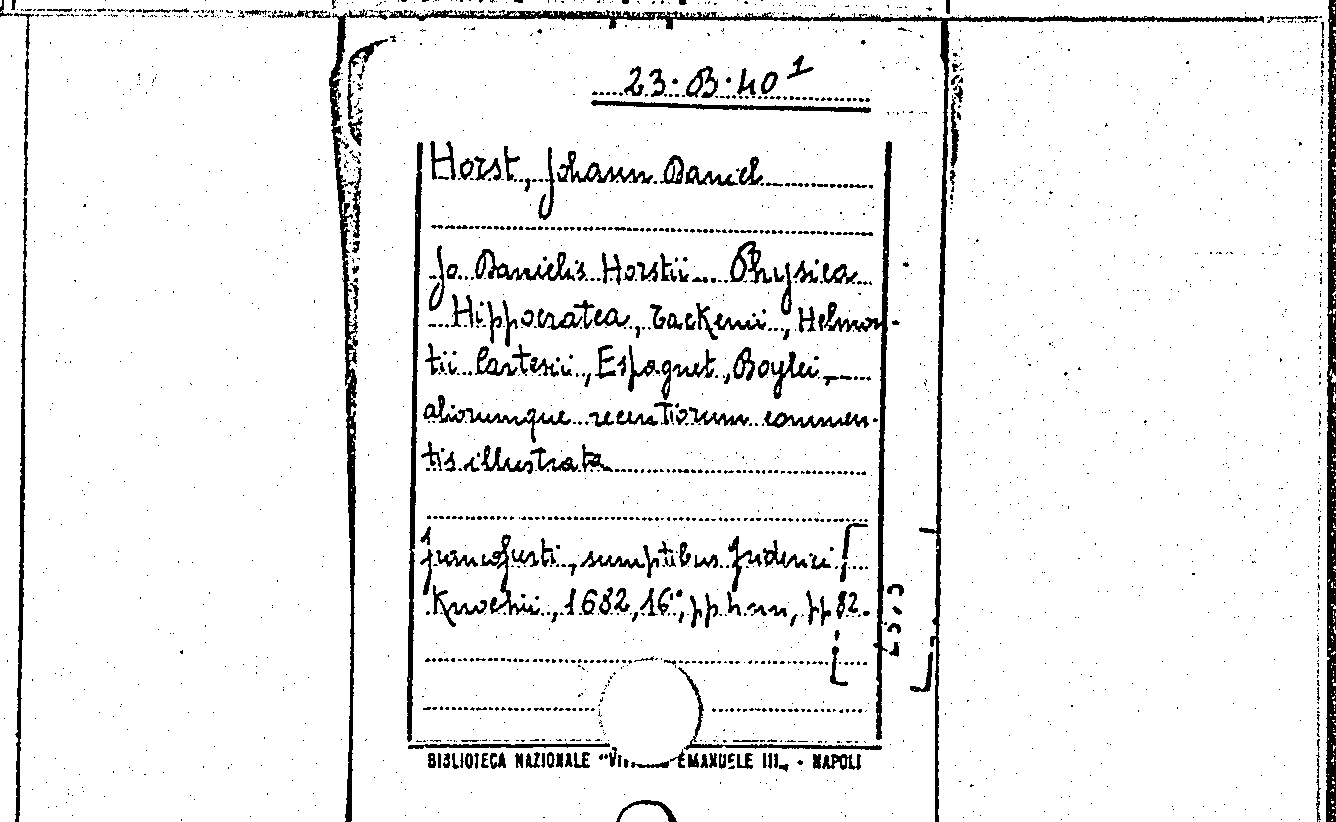 23.B.40¹
Horst, Johann Daniel
Jo. Danielis Horstii... Physica
Hippocratea, Tackenii, Helmon-
tii Cartesii, Espagnet, Boylei,
aliorumque recentiorum commen-
tis illustrata
Francofurti, sumptibus Friderici
Knochii, 1682, 16°, pp. h nn, pp 82.
BIBLIOTECA NAZIONALE "VITT EMANUELE III„ - NAPOLI